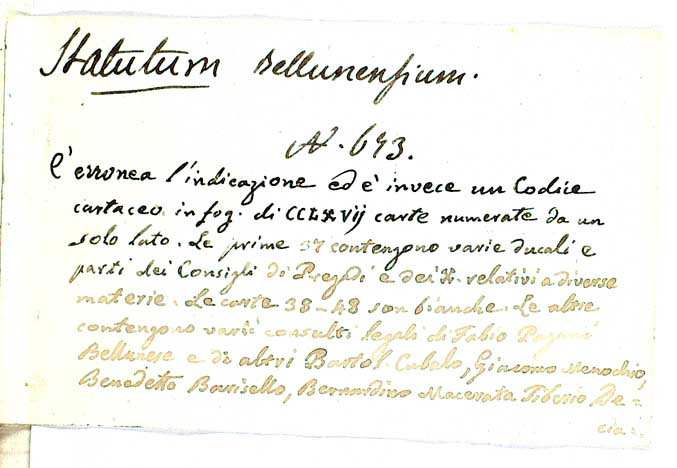 Statutum Bellunensium.
N. 693.
E' erronea l'indicazione ed è invece un Codice
cartaceo in fog. di CCLXVij carte numerate da un
solo lato. Le prime 37 contengono varie ducali e
parti dei Consigli di Pregadi e dei X. relativi a diverse
materie. Le carte 38-48 son bianche. Le altre
contengono varii consulti legali di Fabio Pagani
Bellunese e di altri Bartol. Cubalo, Giacomo Menochio,
Benedetto Barisello, Bernardino Macerata Tiberio De=
cia:.